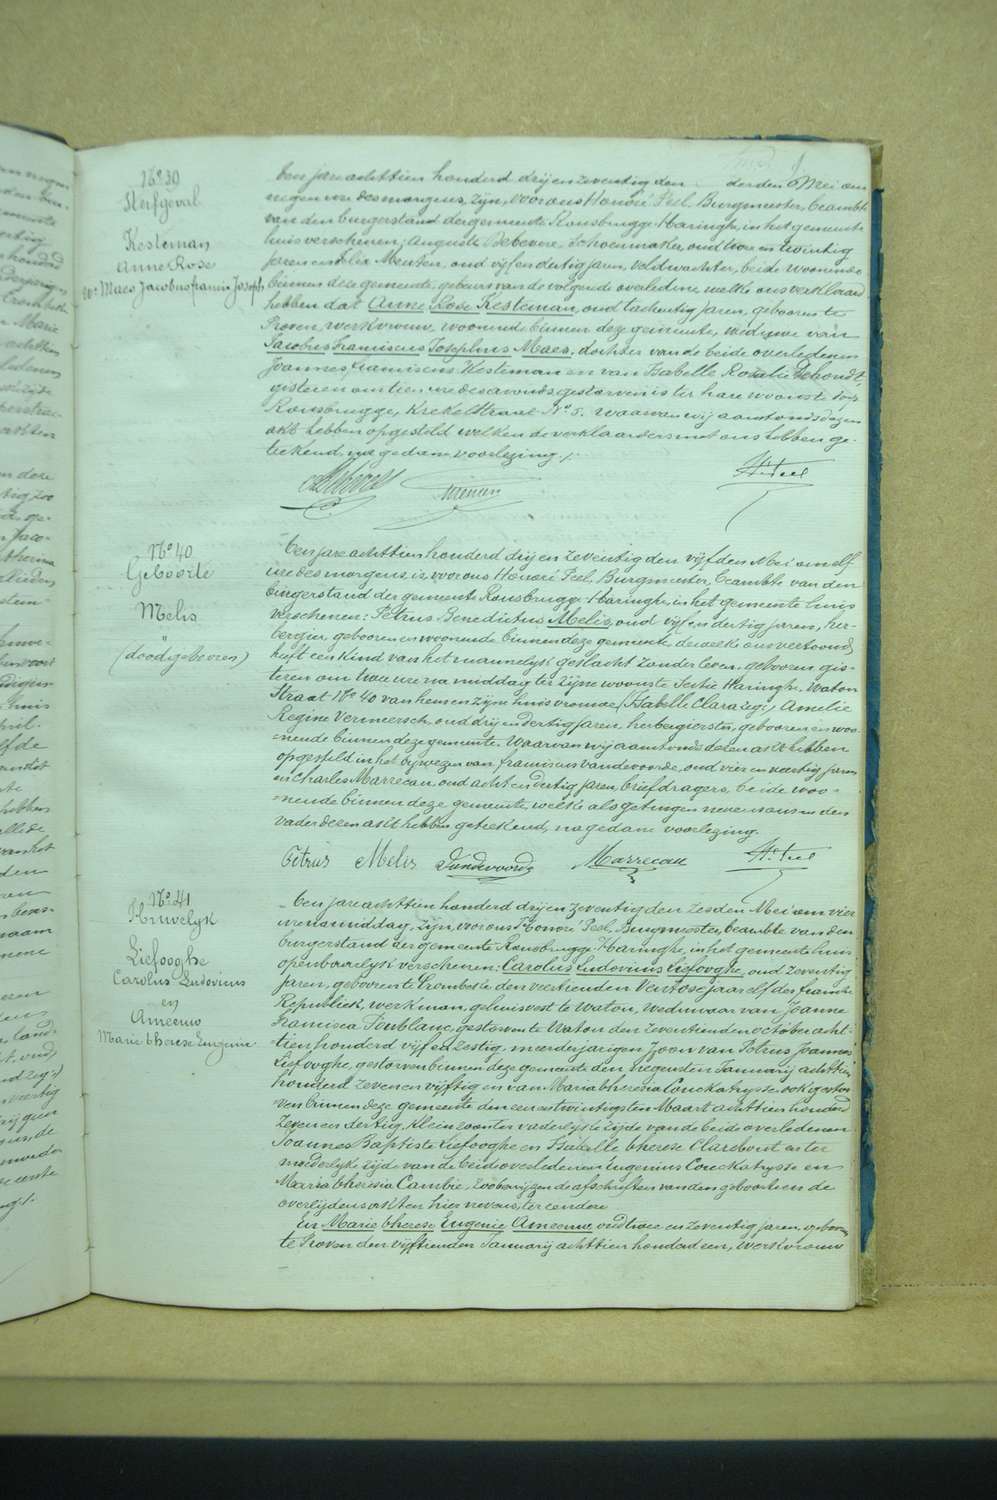 No 39
Sterfgeval
Kesteman
Anne Rose
we Maes Jacobus francis Joseph
Een jare achttien honderd drij en zeventig den derden Mei om
negen ure des morgens, zijn, voor ons Honoré Peel, Burgmeester, beambte
van den burgerstand der gemeente Rousbrugge-Haringhe, in het gemeente
huis verschenen, Auguste Debevere, schoenmaker, oud twee en twintig
jaren en felix Meuten, oud vijf en dertig jaren, veldwachter, beide woonende
binnen deze gemeente, gebuers van de volgende overledene welke ons verklaard
hebben dat Anne Rose Kesteman, oud tachentig jaren, geboren te
Proven, werkvrouw, woonende binnen deze gemeente, weduwe van
Jacobus franciscus Josephus Maes, dochter van de beide overledenen
Joannes franciscus Kesteman en van Isabelle Rosalie Dehondt,
gisteren om tien ure des avonds gestorven is ter hare woonste dorp
Rousbrugge, Krekelstraat No 5. Waarvan wij aanstonds dezen
akt hebben opgesteld welken de verklaarders met ons hebben ge-
teekend, na gedane voorlezing./.
ADebevere
H. Peel
No 40
Geboorte
Melis
"
(doodgeboren)
Een jare achttien honderd drij en zeventig den vijfden Mei om elf
ure des morgens, is, voor ons Honoré Peel, Burgmeester, beambte van den
burgerstand der gemeente Rousbrugge-Haringhe, in het gemeente huis
verschenen: Petrus Benedictus Melis, oud vijf en dertig jaren, her-
bergier, geboren en woonende binnen deze gemeente, dewelke ons vertoond
heeft een kind van het mannelijk geslacht zonder leven, geboren gis-
teren om twee ure na middag ter zijne woonste Sectie Haringhe, Waton
Straat No 40 van hem en zijne huisvrouwe (Isabelle Clara zegt) Amelie
Regine Vermeersch, oud drij en dertig jaren, herbergierster, geboren en woo-
nende binnen deze gemeente. Waarvan wij aanstonds dezen akt hebben
opgesteld in het bijwezen van franciscus Vandevoorde, oud vier en veertig jaren
en Charles Marrecau, oud acht en dertig jaren, briefdragers, beide woo-
nende binnen deze gemeente, welke als getuigen nevens ons en den
vader dezen akt hebben geteekend, na gedane voorlezing.
Petrus Melis Vandevoorde Marrecau H. Peel
No 41
Huwelyk
Liefooghe
Carolus Ludovicus
en
Ameeuw
Marie therese Eugenie
Een jare achttien honderd drij en zeventig den zesden Mei om vier
ure namiddag, zijn, voor ons Honoré Peel, Burgmeester, beambte van den
burgerstand der gemeente Rousbrugge-Haringhe, in het gemeente huis
openbaarlyk verschenen: Carolus Ludovicus Liefooghe, oud zeventig
jaren, geboren te Crombeke den veertienden Ventose jaar elf der fransche
Republiek, werkman, gehuisvest te Waton, weduwaar van Joanne
francisca Toublanc, gestorven te Waton den zeventienden october acht-
tien honderd vijf en zestig, meerderjarigen Zoon van Petrus Joannes
Liefooghe, gestorven binnen deze gemeente den negensten January achttien
honderd zeven en vijftig en van Maria theresia Couckathysse, ook gestor
ven binnen deze gemeente den een en twintigsten Maart achttien honderd
zeven en dertig, kleinzoon ter vaderlyke zijde van de beide overledenen
Joannes Baptiste Liefooghe en Isabelle therese Clarebout en ter
moederlyke zijde van de beide overledenen Eugenius Couckathysse en
Maria theresia Cambie, zoo bewijzen de afschriften van den geboorte en de
overlydens akten hier nevens, ter eendere
En Marie therese Eugenie Ameeuw, oud twee en zeventig jaren, geboren
te Proven den vijftienden January achttien honderd een, werkvrouw